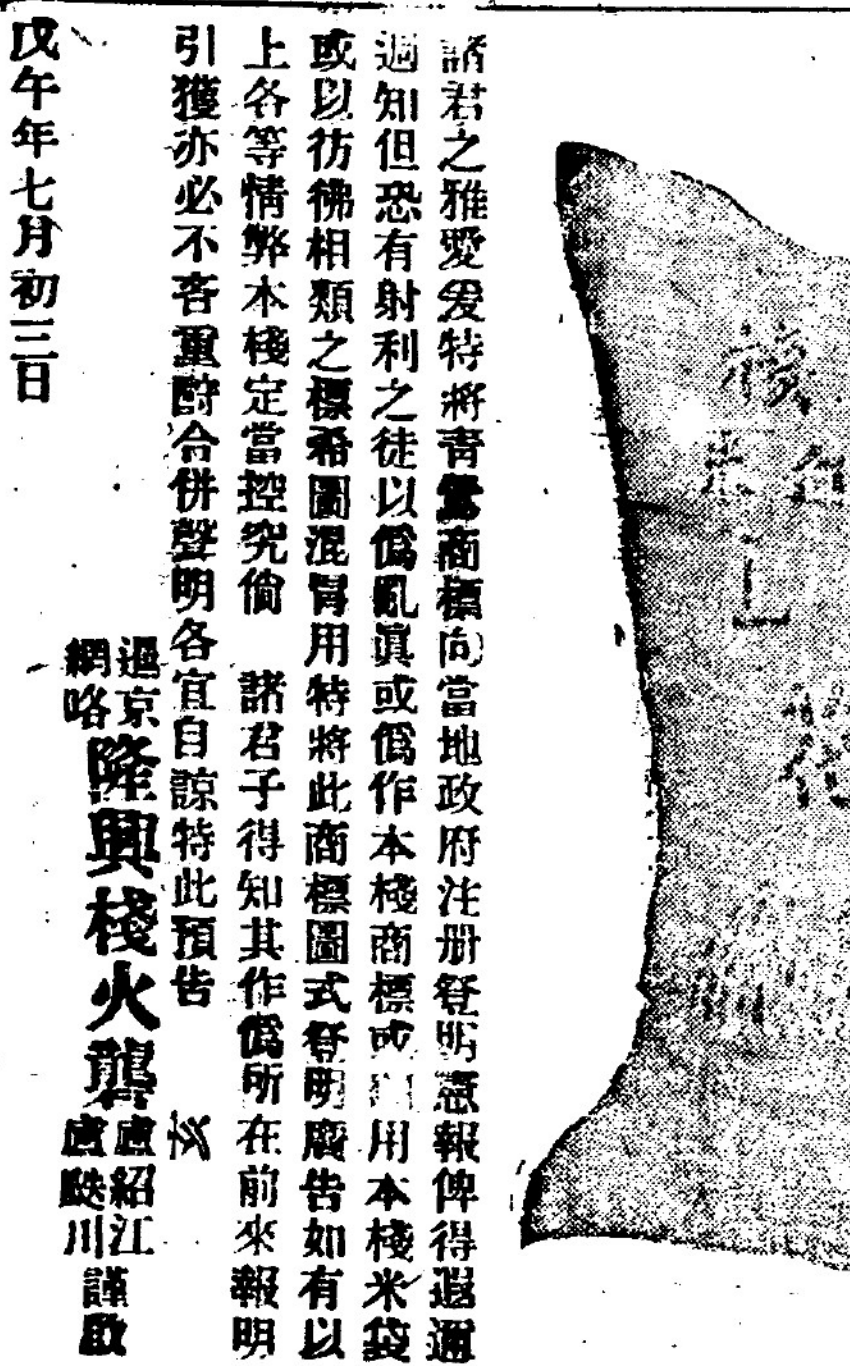 諸君之雅愛爰特將靑鸞商標向當地政府注册登明憲報俾得遐邇
週知但恐有射利之徒以僞亂眞或僞作本棧商標或用本棧米袋
或以彷彿相類之標希圖混冒用特將此商標圖式登明廣告如有以
上各等情弊本棧定當控究倘 諸君子得知其作僞所在前來報明
引獲亦必不吝重酧合併聲明各宜自諒特此預告
暹京
網咯
隆興棧火礱
盧紹江
盧颷川
謹啟
戊午年七月初三日